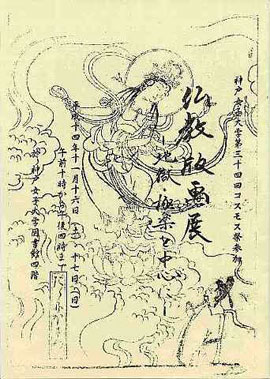 神戸女子大学第三十四回コスモス祭参加
仏教版画展
地獄・極楽を中心に
平成十四年十一月十六日(土)十七日(日)
午前十時から午後四時まで
神戸女子大学図書館四階